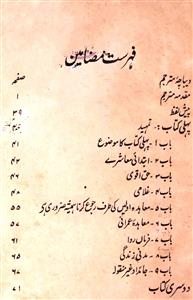 فہرست مضامین
صفحہ
دیباچہ مترجم
مقدمہ مترجم ۱
پیش لفظ ۳۹
پہلی کتاب :۔ تمہید ۴۰
باب ۱۔ پہلی کتاب کا موضوع ۴۱
باب ۲۔ ابتدائی معاشرے ۴۲
باب ۳۔ حق اقوی ۴۶
باب ۴۔ غلامی ۴۸
باب ۵۔ معاہدہ اولیں کی طرف رجوع کرنا ہمیشہ ضروری ہے ۵۵
باب ۶۔ معاہدہ عمرانی ۵۷
باب ۷۔ فرماں روا ۶۱
باب ۸۔ مدنی زندگی ۶۵
باب ۹۔ جائداد غیر منقولہ ۶۷
دوسری کتاب ۷۱